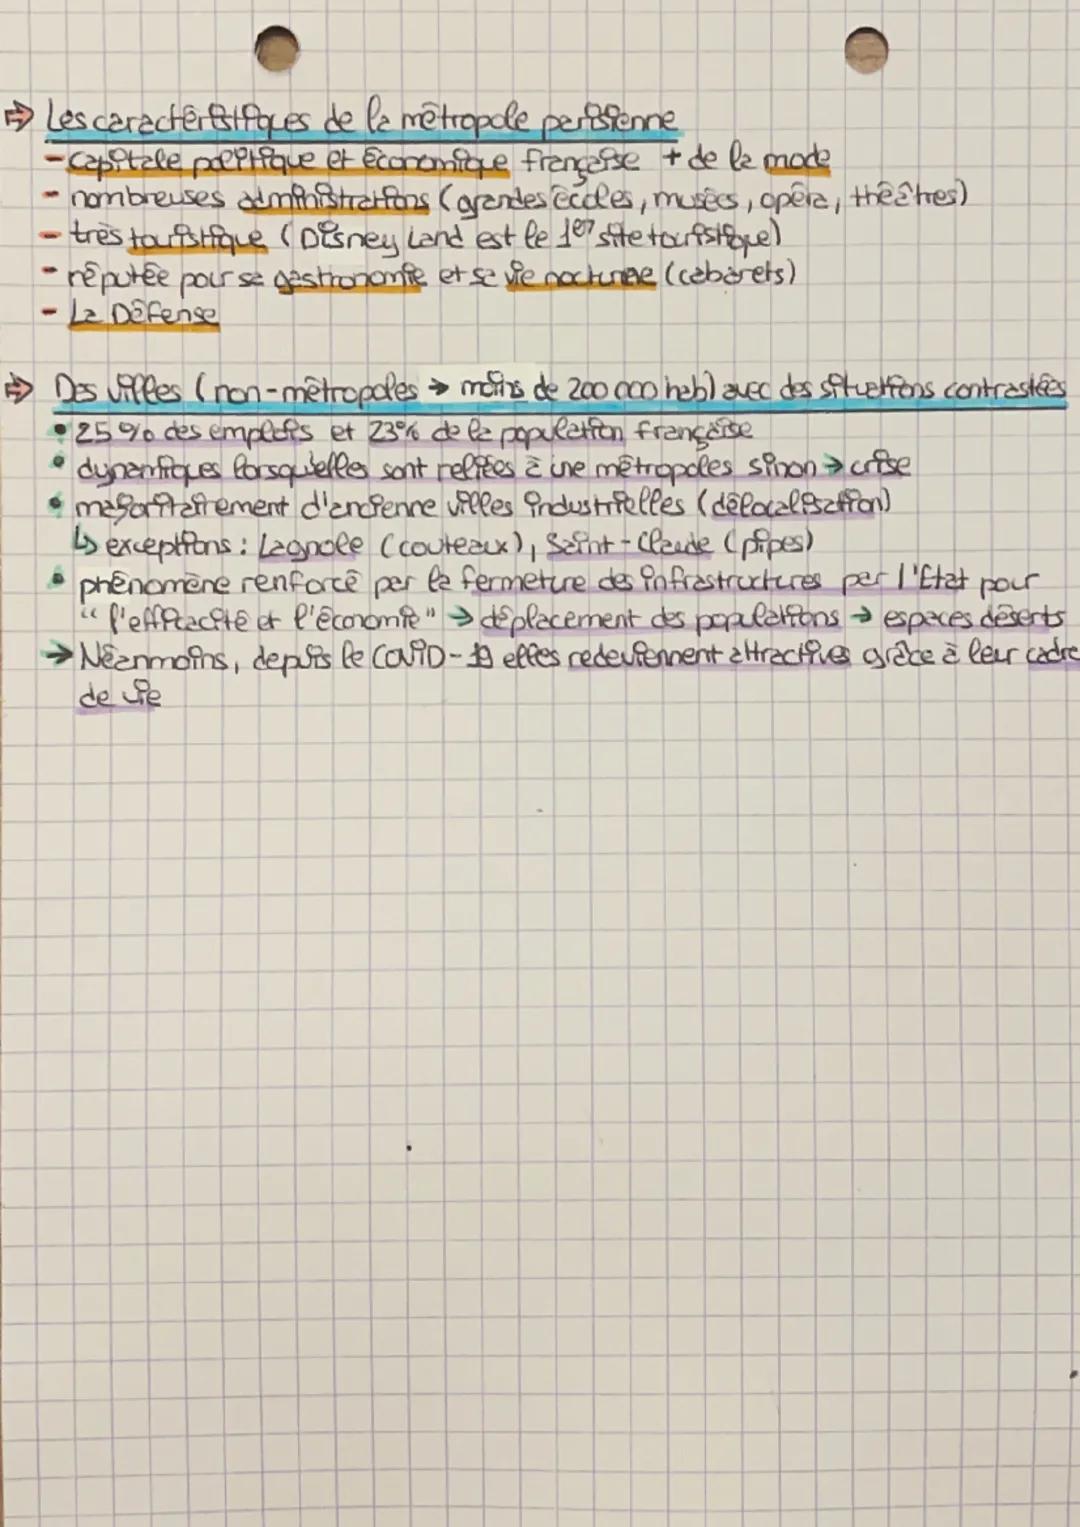 ⇒ Les caractéristiques de la métropole parisienne
- capitale politique et économique française + de la mode
- nombreuses administrations (grandes écoles, musées, opéra, théâtres)
- très touristique (Disney Land est le 1er site touristique)
- réputée pour sa gastronomie et sa vie nocturne (cabarets)
- La Défense
⇒ Des villes (non-métropoles → moins de 200 000 hab) avec des situations contrastées
• 25 % des emplois et 23% de la population française
• dynamiques lorsqu'elles sont reliées à une métropoles sinon → crise
• majoritairement d'ancienne villes industrielles (délocalisation)
↳ exceptions : Lagnole (couteaux), Saint-Claude (pipes)
• phénomène renforcé par la fermeture des infrastructures par l'Etat pour
"l'efficacité et l'économie" → déplacement des populations → espaces déserts
→ Néanmoins, depuis le COVID-19 elles redeviennent attractives grâce à leur cadre
de vie